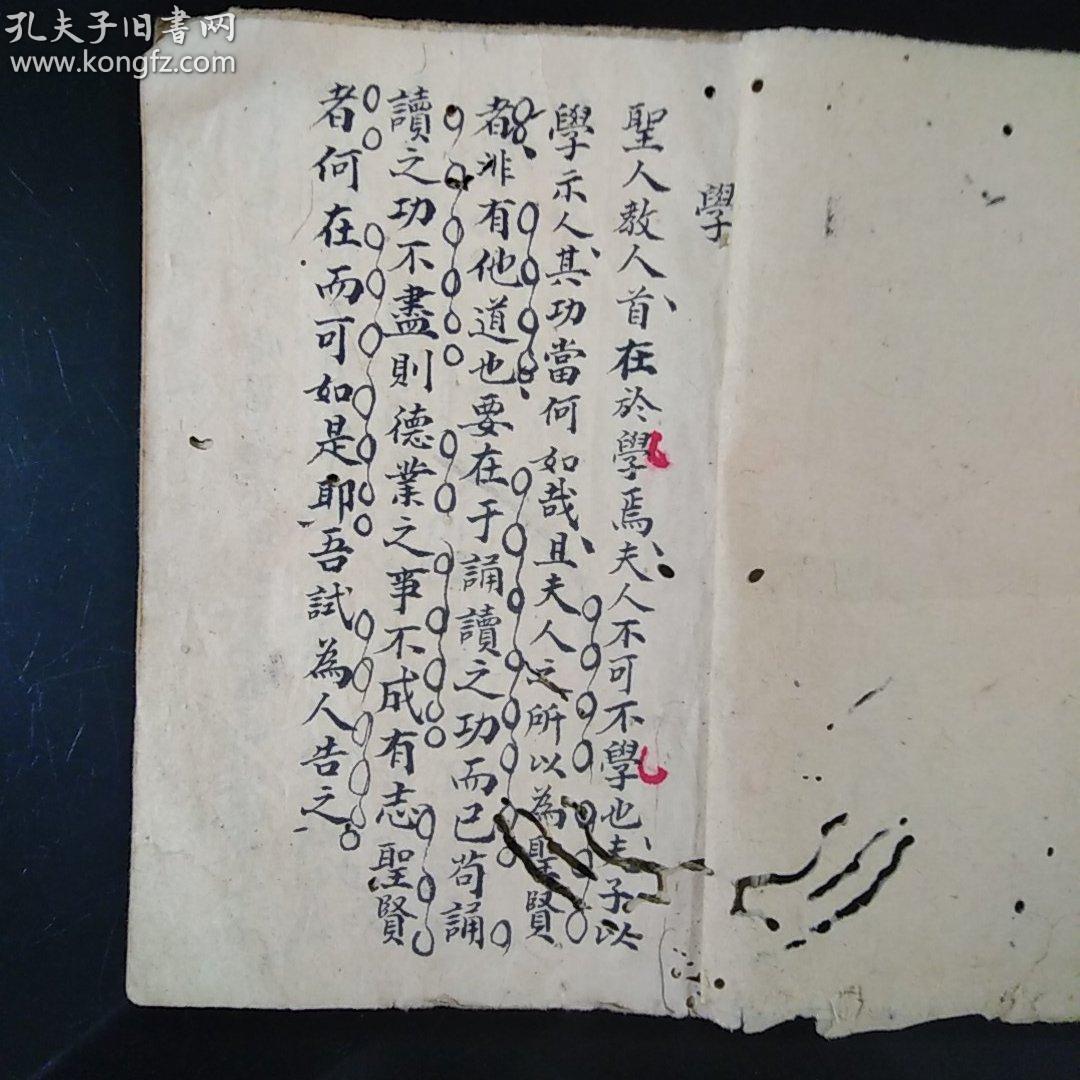 孔夫子旧书网
www.kongfz.com
學
聖人教人首在於學焉夫人不可不學也夫子以
學示人其功當何如哉且夫人之所以為聖賢
者非有他道也要在于誦讀之功而已苟誦
讀之功不盡則德業之事不成有志聖賢
者何在而可如是耶吾試為人告之